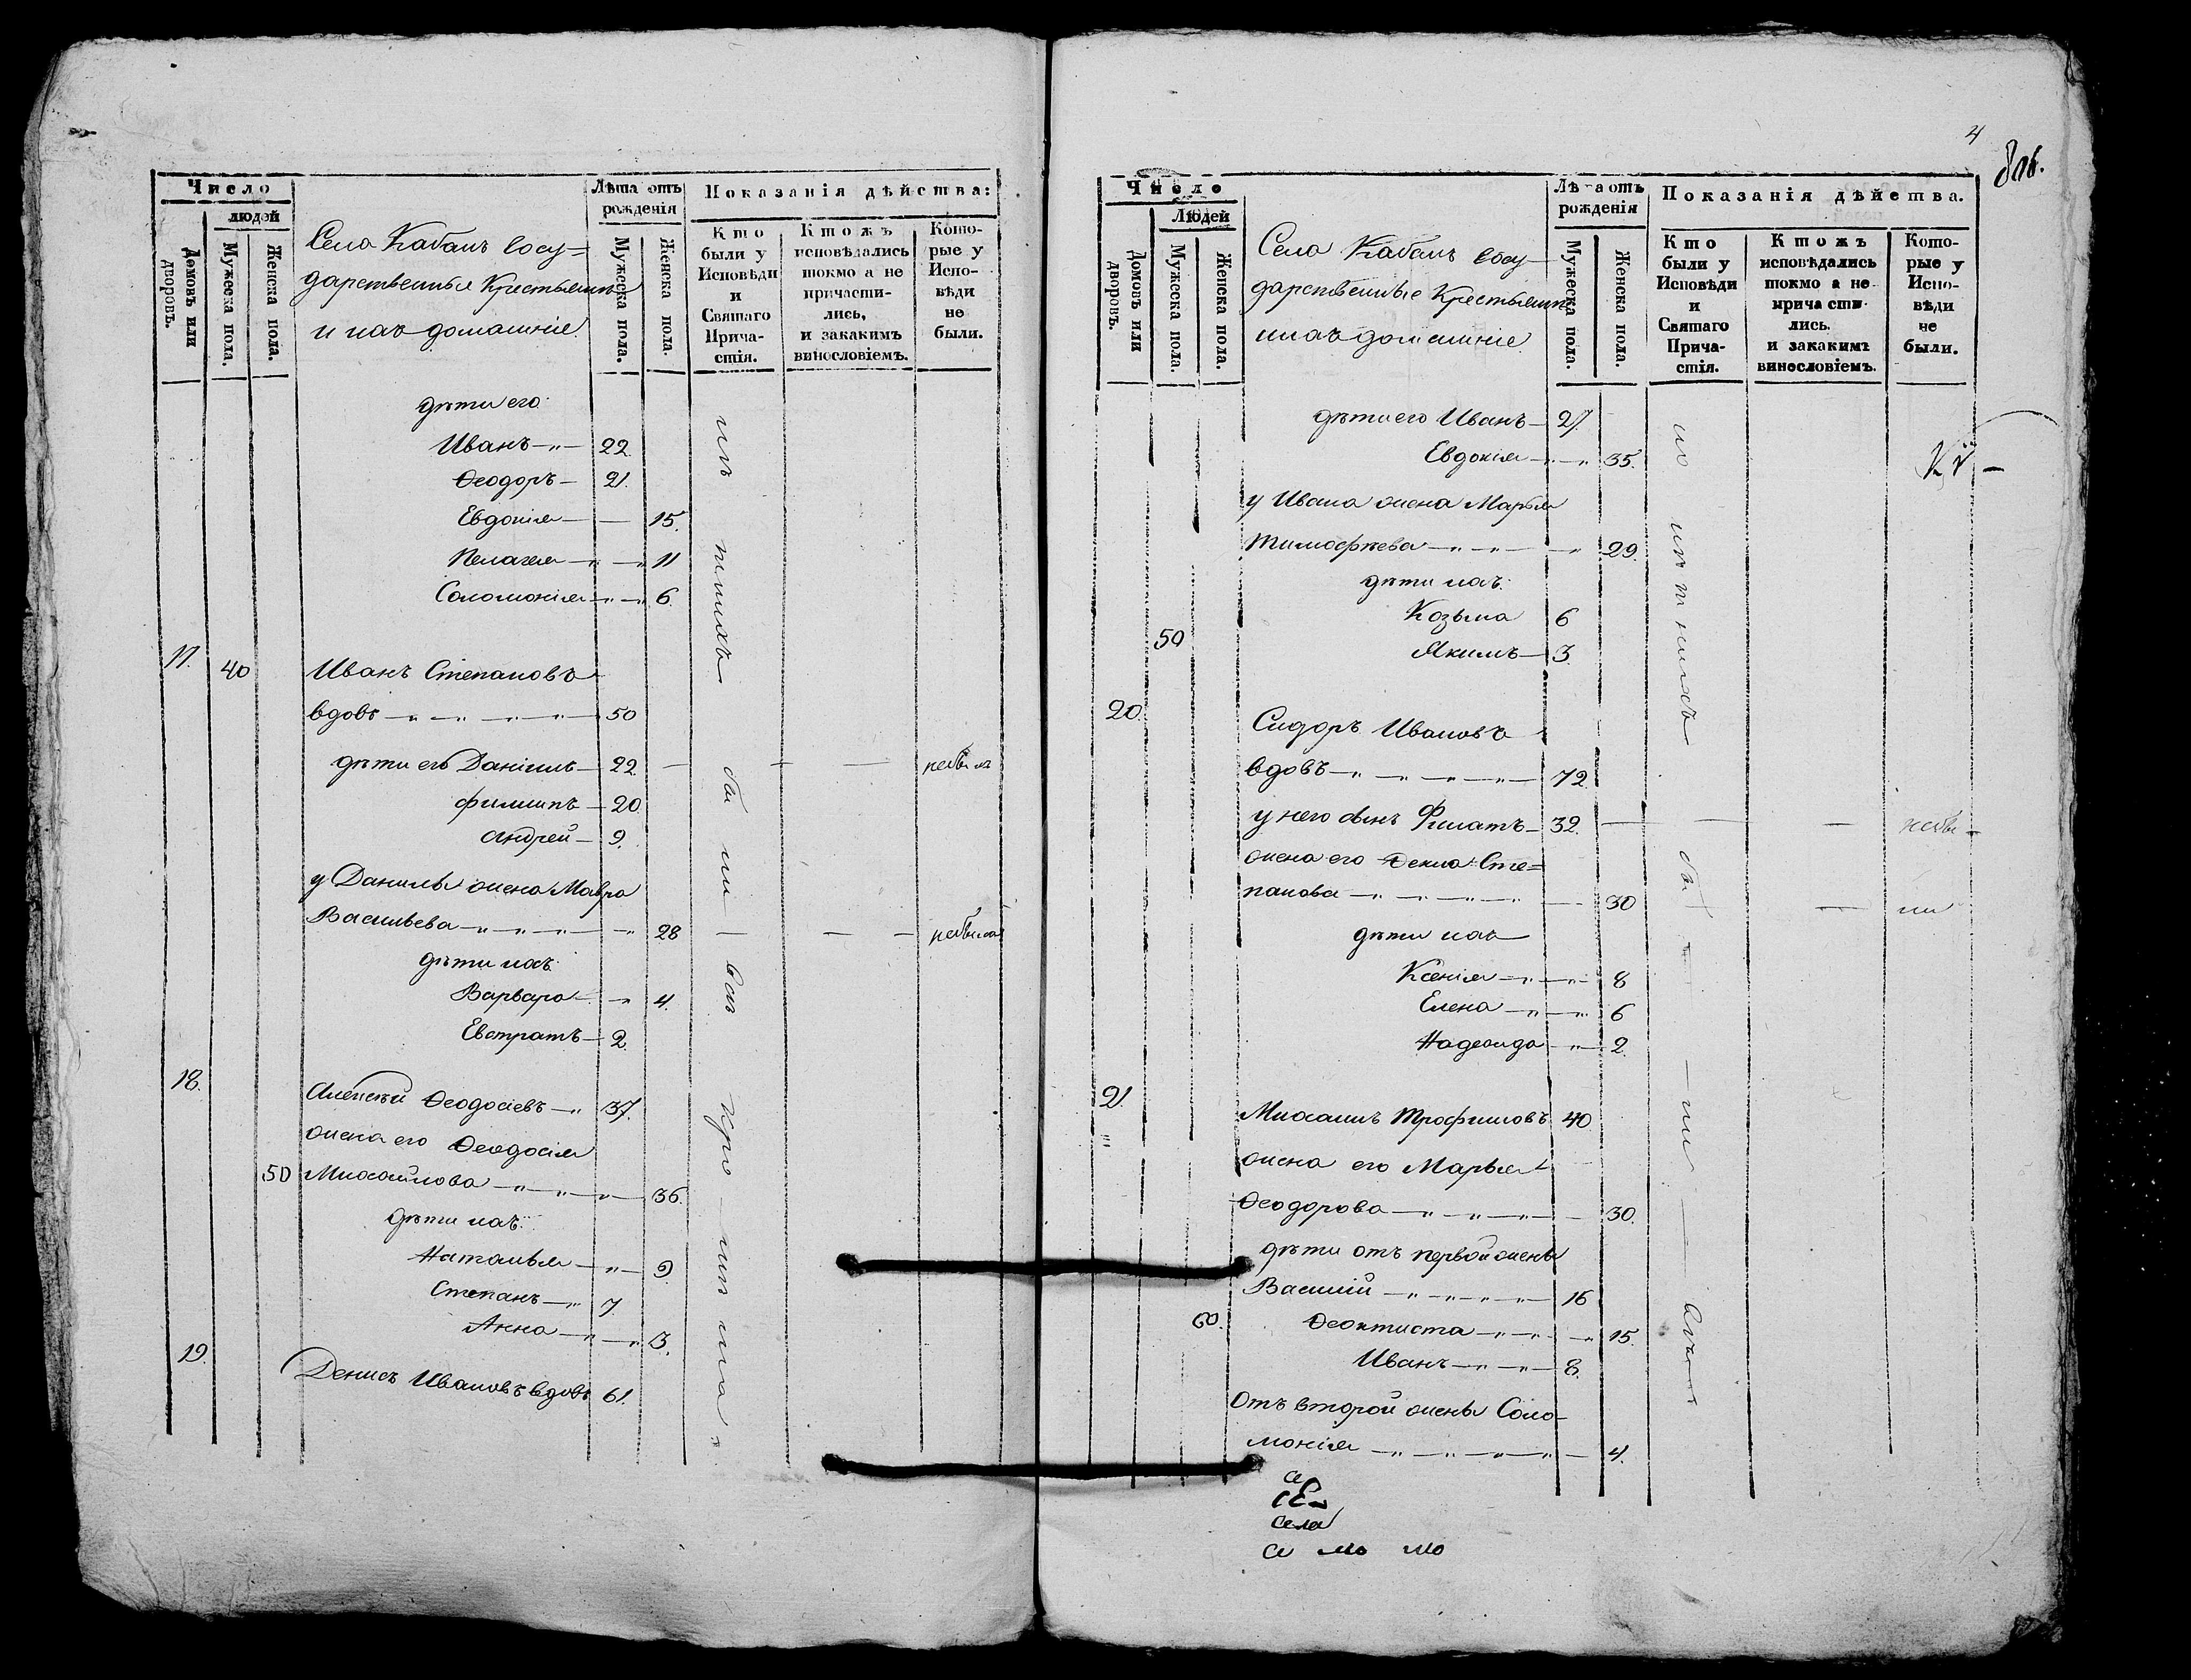 Число
людей
Домовъ или дворовъ.
Мужеска пола.
Женска пола.
Села Кабанъ Госу=
дарственныя Крестьяне
и ихъ домашніе
Лѣта отъ рожденія
Мужеска пола.
Женска пола.
Показанія дѣйства:
Кто были у Исповѣди и Святаго Причастія.
Ктожъ исповѣдались токмо а не причастились, и закакимъ винословіемъ.
Которые у Исповѣди не были.
дѣти его
Иванъ 22
Ѳеодоръ 21.
Евдокія 15.
Пелагея 11
Соломонія 6.
17. 40 Иванъ Степановъ
вдовъ 50
дѣти его Даніилъ 22 небылъ
Филиппъ 20
Андрей 9.
у Данилы жена Мавра
Васильева 28 небыла
дѣти ихъ
Варвара 4.
Евстратъ 2.
18. Алексѣй Ѳеодосіевъ 37.
жена его Ѳеодосія
50 Михайлова 36.
дѣти ихъ
Наталья 9
Степанъ 7.
Анна 3.
19. Денисъ Ивановъ вдовъ 61.
4
Число
Людей
Домовъ или дворовъ.
Мужеска пола.
Женска пола.
Села Кабанъ Госу-
дарственные Крестьяне
ихъ домашніе
Лѣта отъ рожденія
Мужеска пола.
Женска пола.
Показанія дѣйства.
Кто были у Исповѣди и Святаго Причастія.
Ктожъ исповѣдались токмо а не причастились. и закакимъ винословіемъ.
Которые у Исповѣди не были.
дѣти его Иванъ 27.
Евдокія 35.
у Ивана жена Марья
Тимофѣева 29.
дѣти ихъ
Козьма 6
50 Якимъ 3.
20. Сидоръ Ивановъ
вдовъ 72
у него сынъ Филатъ 32. небы
жена его Ѳекла Сте=
панова 30 ли
дѣти ихъ
Ксенія 8
Елена 6
Надежда 2.
21. Михаилъ Трофимовъ 40.
жена его Марья
Ѳеодорова 30.
дѣти отъ первой жены
Василій 16
60. Ѳеоктиста 15.
Иванъ 8.
Отъ второй жены Соло-
монія 4.
се
села